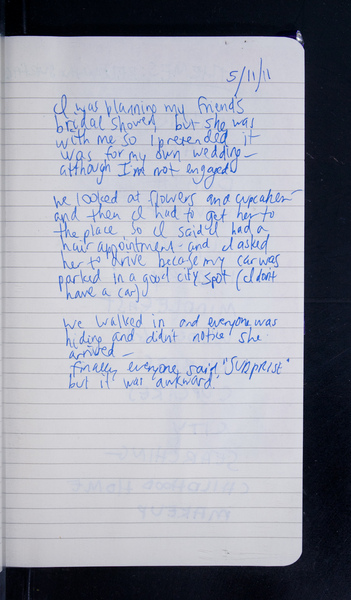 5/11/11
I was planning my friends
bridal shower, but she was
with me so I pretended it
was for my own wedding -
although I'm not engaged
we looked at flowers and cupcakes -
and then I had to get her to
the place so I said I had a
hair appointment - and I asked
her to drive because my car was
parked in a good city spot (I dont
have a car)
we walked in and everyone was
hiding and didn't notice she
arrived -
finally everyone said, "SURPRISE"
but it was awkward.
SEARCHING
CHILDHOOD HOME
MAKEUP